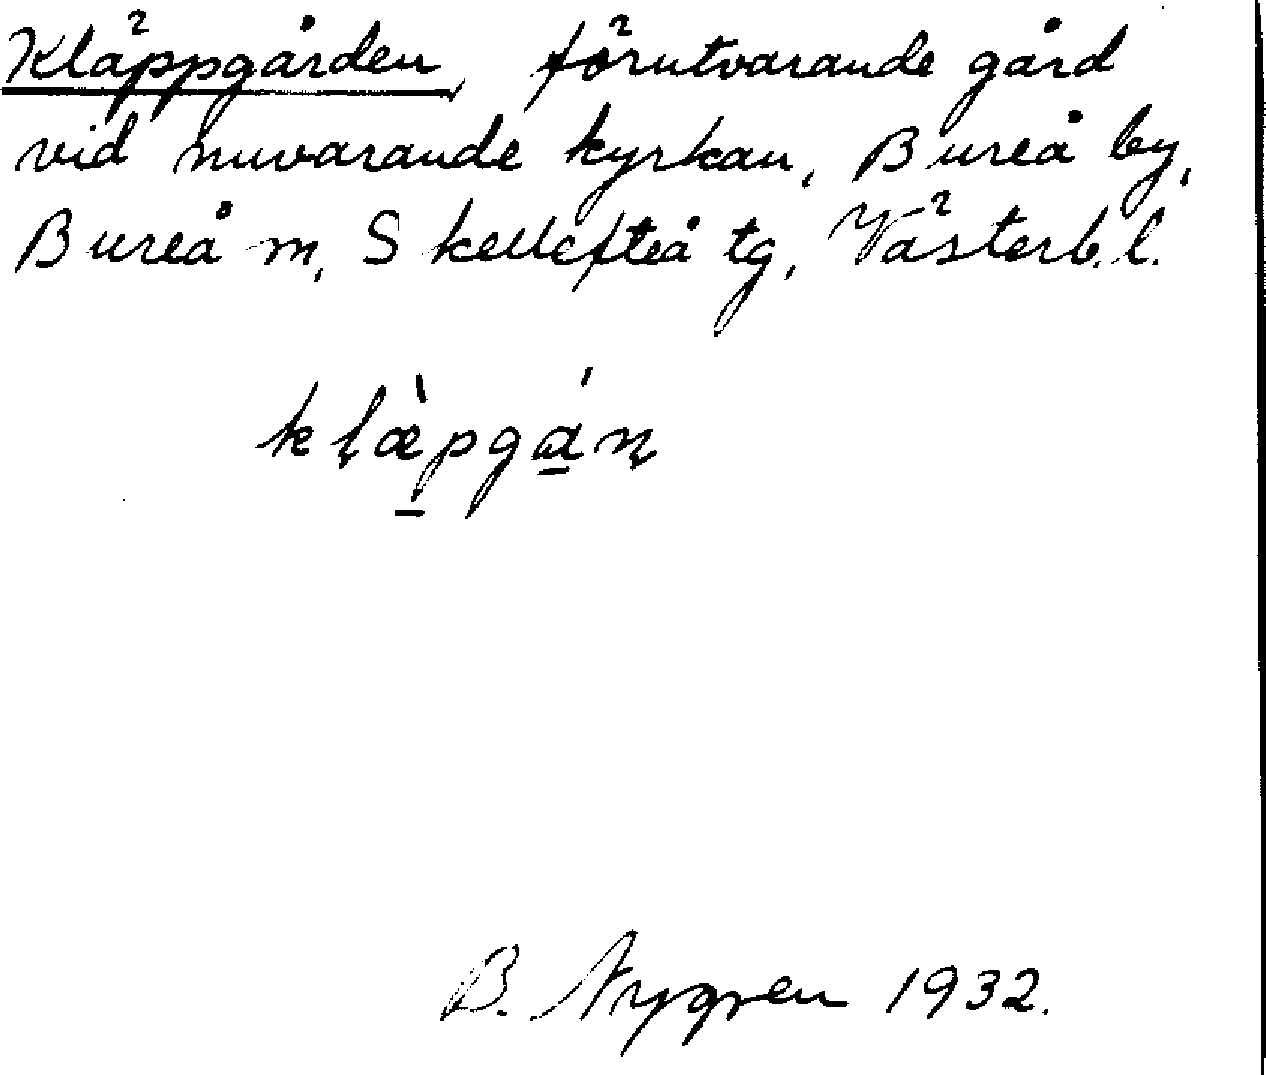 Kläppgården, förutvarande gård
vid nuvarande kyrkan, Bureå by,
Bureå m, Skellefteå tg, Västerb.l.
kḷæ̀pgán̨
B. Nygren 1932.